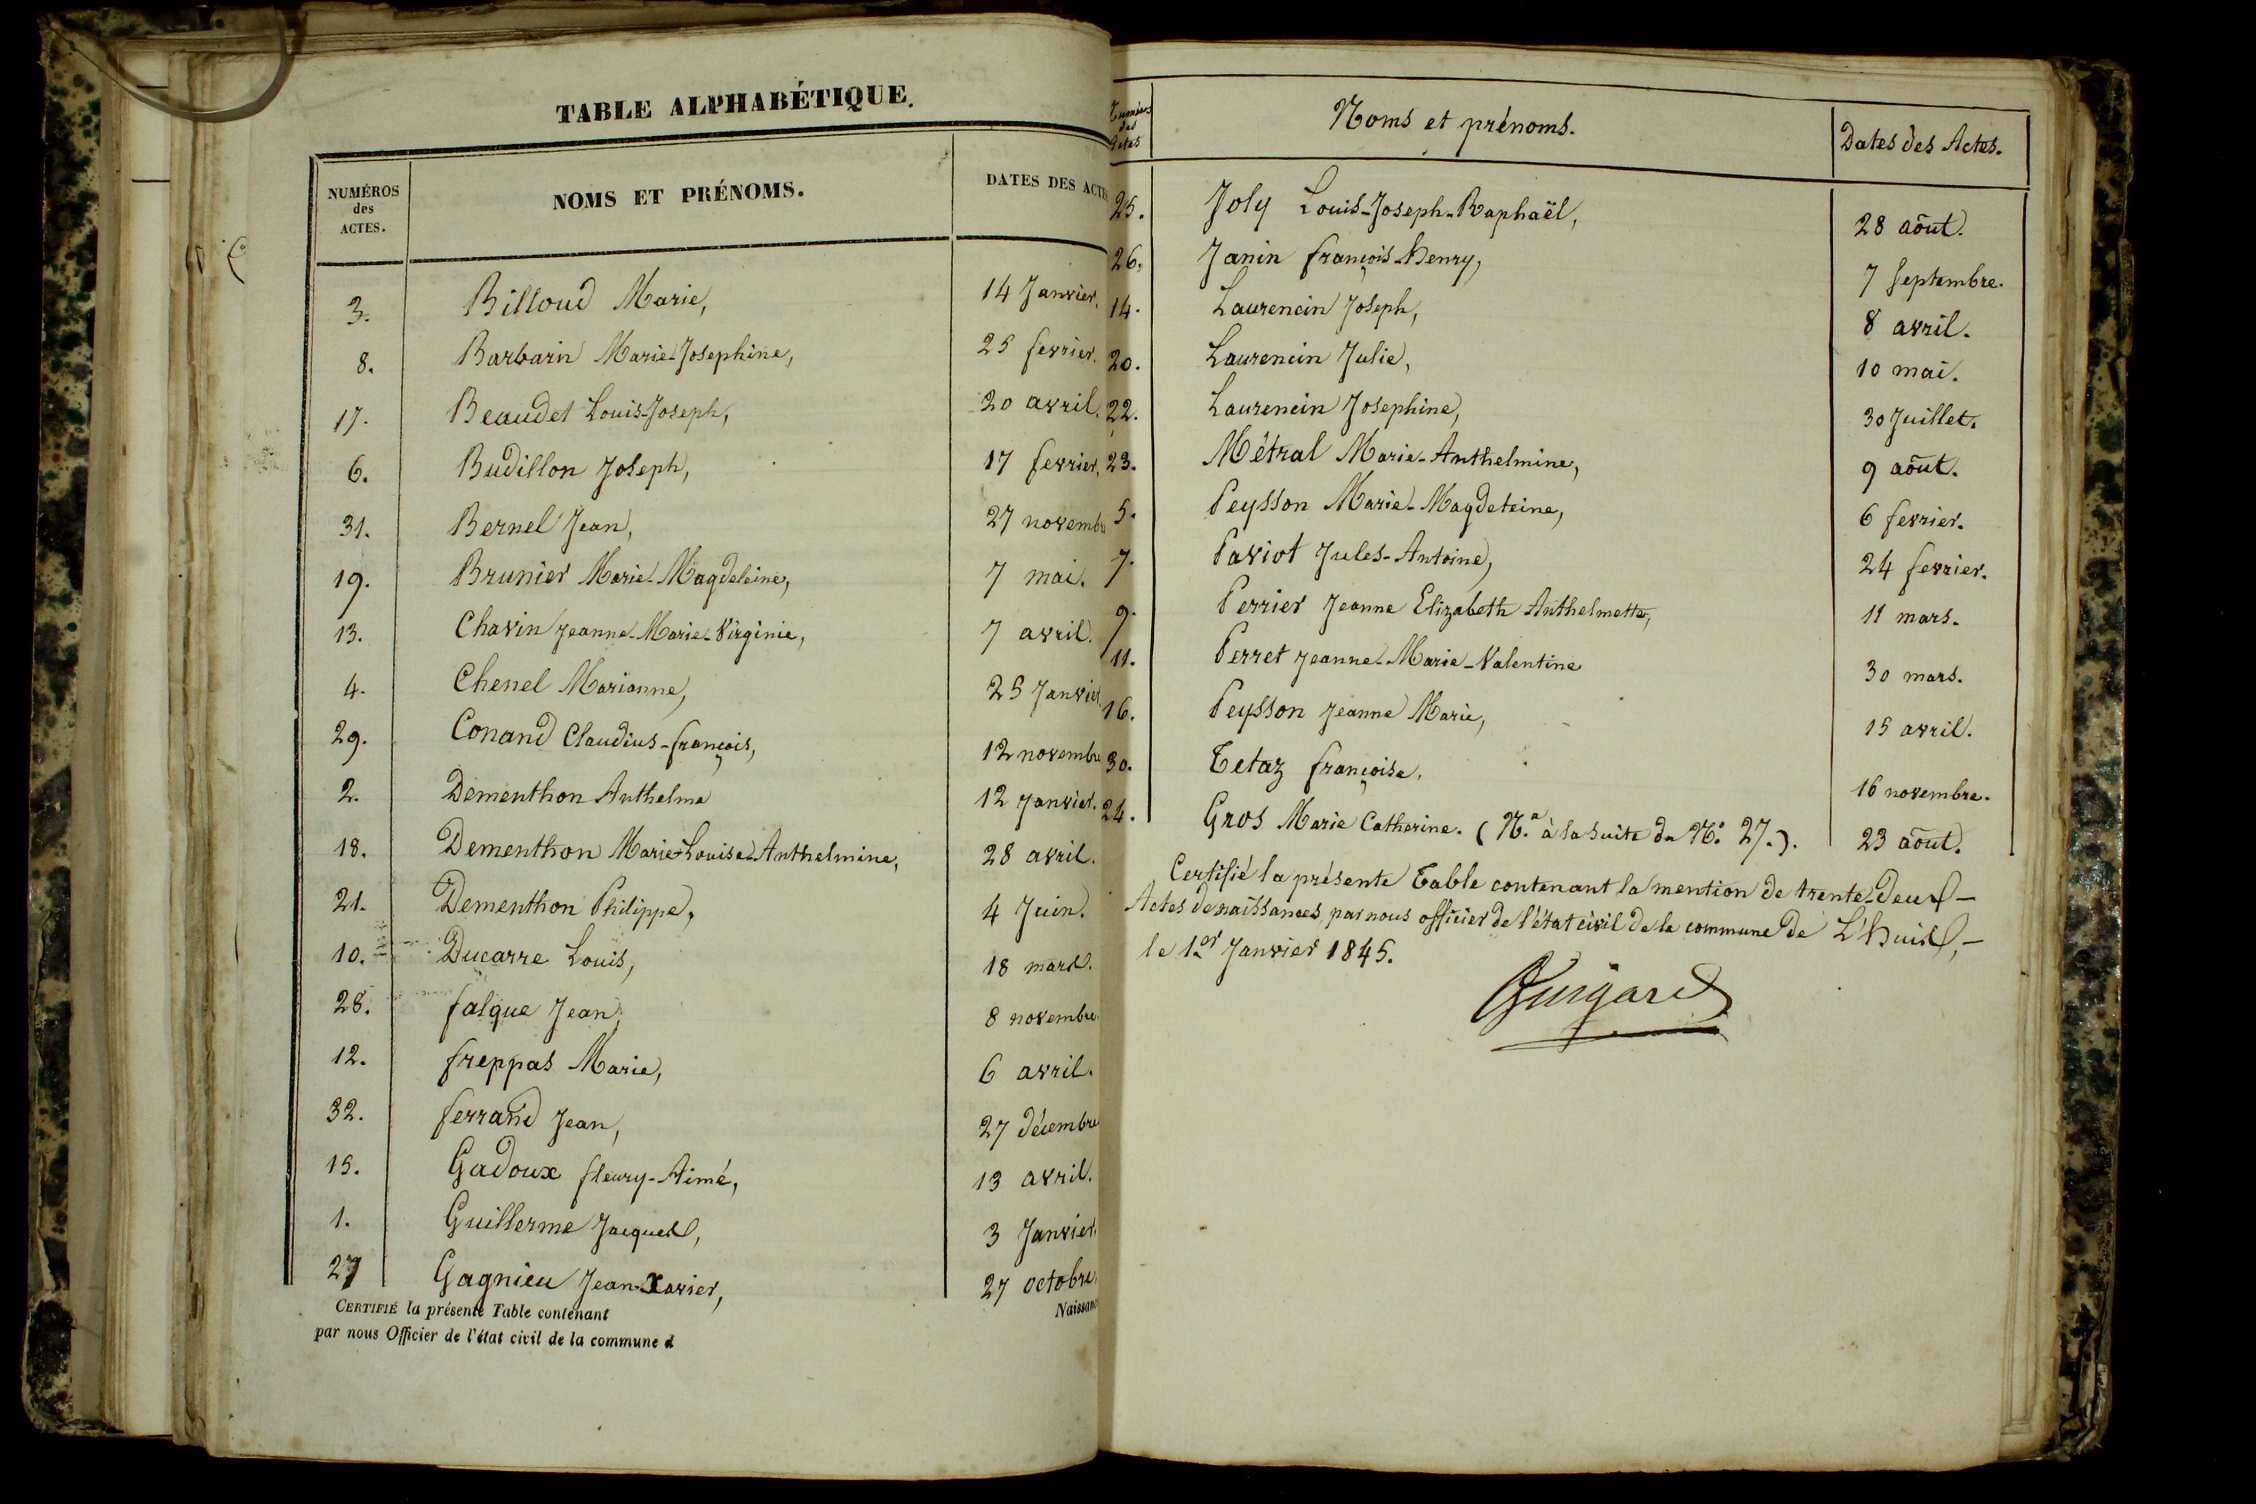 TABLE ALPHABÉTIQUE.
NUMÉROS des ACTES. NOMS ET PRÉNOMS. DATES DES ACTES
3. Billoud Marie, 14 Janvier.
8. Barbarin Marie-Josephine, 25 fevrier.
17. Beaudet Louis-Joseph, 20 avril.
6. Budillon Joseph, 17 fevrier,
31. Bernel Jean, 27 novembre
19. Brunier Marie-Magdeleine, 7 mai.
13. Chavin Jeanne-Marie-Virginie, 7 avril.
4. Chenel Marianne, 25 Janvier
29. Conand Claudius-françois, 12 novembre
2. Dementhon Anthelme 12 Janvier.
18. Dementhon Marie-Louise-Anthelmine, 28 avril.
21. Dementhon Philippe, 4 Juin.
10. Ducarre Louis, 18 mars.
28. falque Jean, 8 novembre.
12. freppas Marie, 6 avril.
32. ferrand Jean, 27 décembre
15. Gadoux fleury-Aimé, 13 avril.
1. Guillerme Jacques, 3 Janvier.
27 Gagnieu Jean-Xavier, 27 octobre.
CERTIFIÉ la présente Table contenant Naissan
par nous Officier de l'état civil de la commune d
Numéros des Actes Noms et prénoms. Dates des Actes.
25. Joly Louis-Joseph-Raphaël, 28 aôut.
26. Janin françois-henry, 7 Septembre.
14. Laurencin Joseph, 8 avril.
20. Laurencin Julie, 10 mai.
22. Laurencin Josephine, 30 Juillet.
23. Métral Marie-Anthelmine, 9 aôut.
5. Peysson Marie-Magdeleine, 6 fevrier.
7. Paviot Jules-Antoine, 24 fevrier.
9. Perrier Jeanne Elizabeth Anthelmette, 11 mars.
11. Perret Jeanne-Marie-Valentine 30 mars.
16. Peysson Jeanne Marie, 15 avril.
30. Tetaz françoise. 16 novembre.
24. Gros Marie Catherine. (N.a à la suite du N.o 27.). 23 aôut.
Certifié la présente Table contenant la mention de trente-deux
Actes de naissances, par nous officier de l'état civil de la commune de L'huis,
le 1.er Janvier 1845.
Guigard